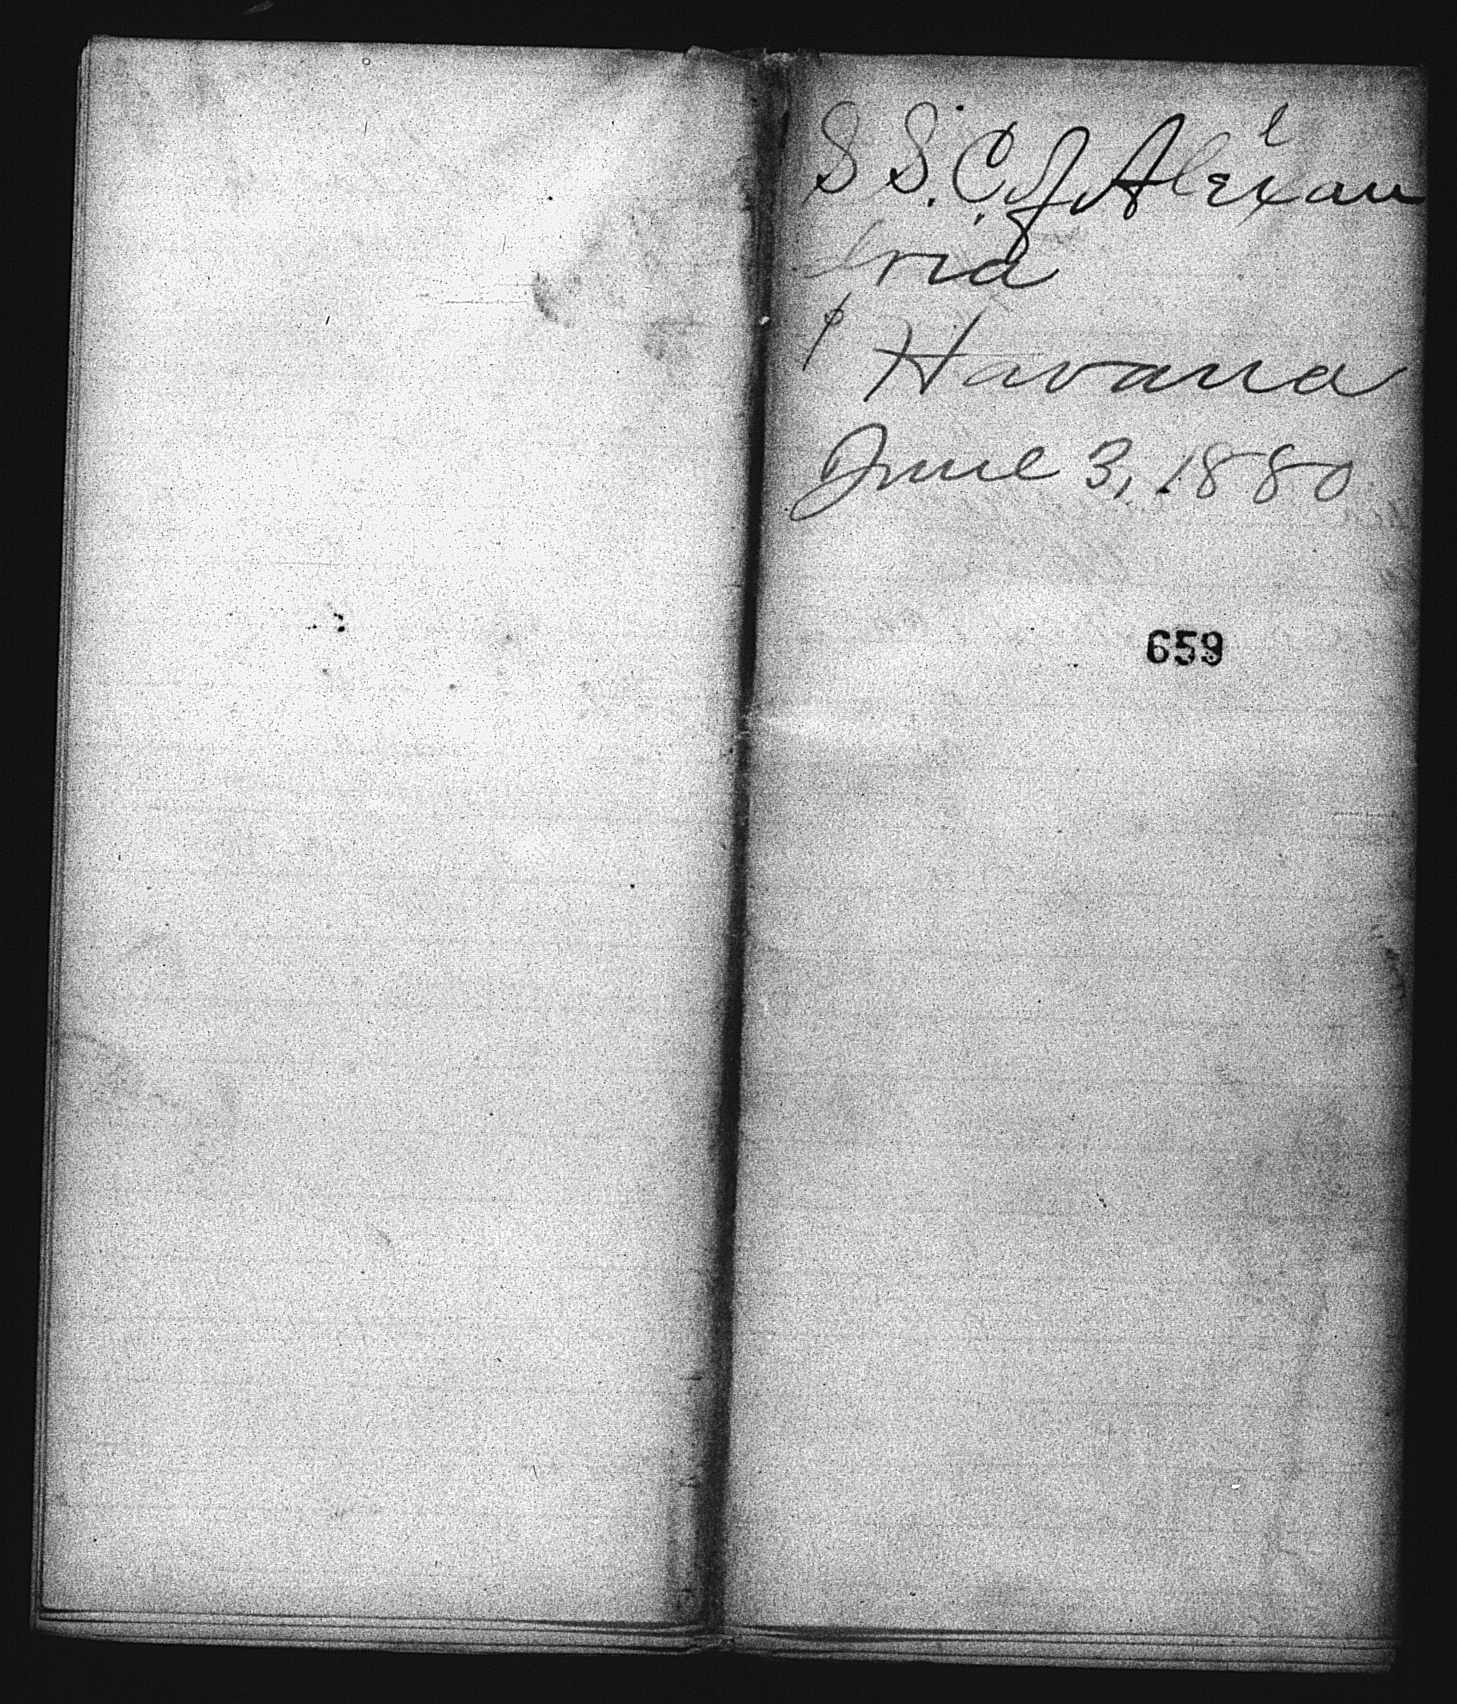 S S. C. of Alexan
dria
Havana
June 3, 1880
659